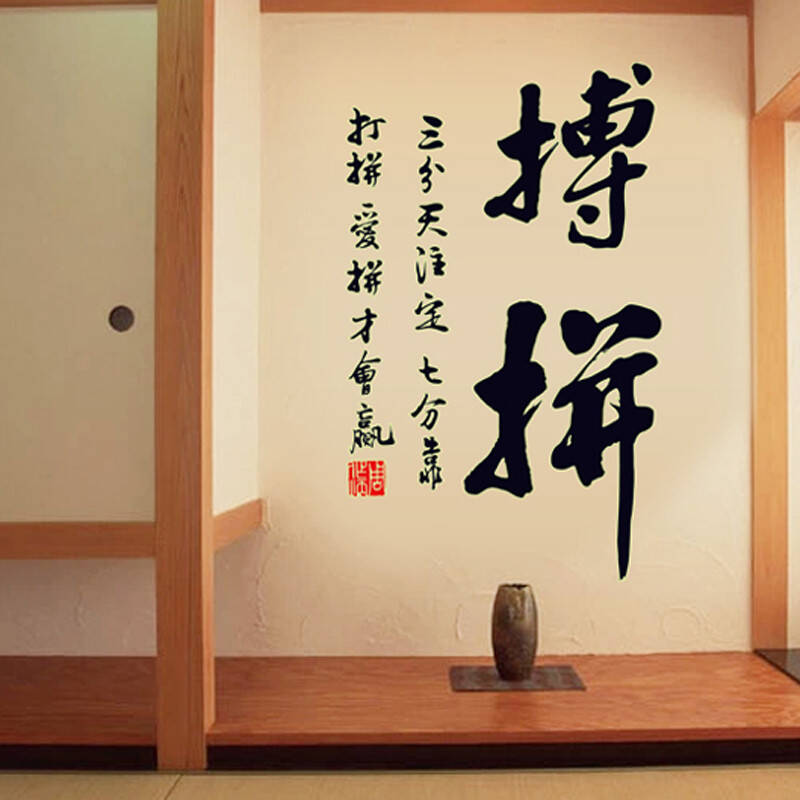 搏拼
三分天注定七分靠
打拼愛拼才會贏